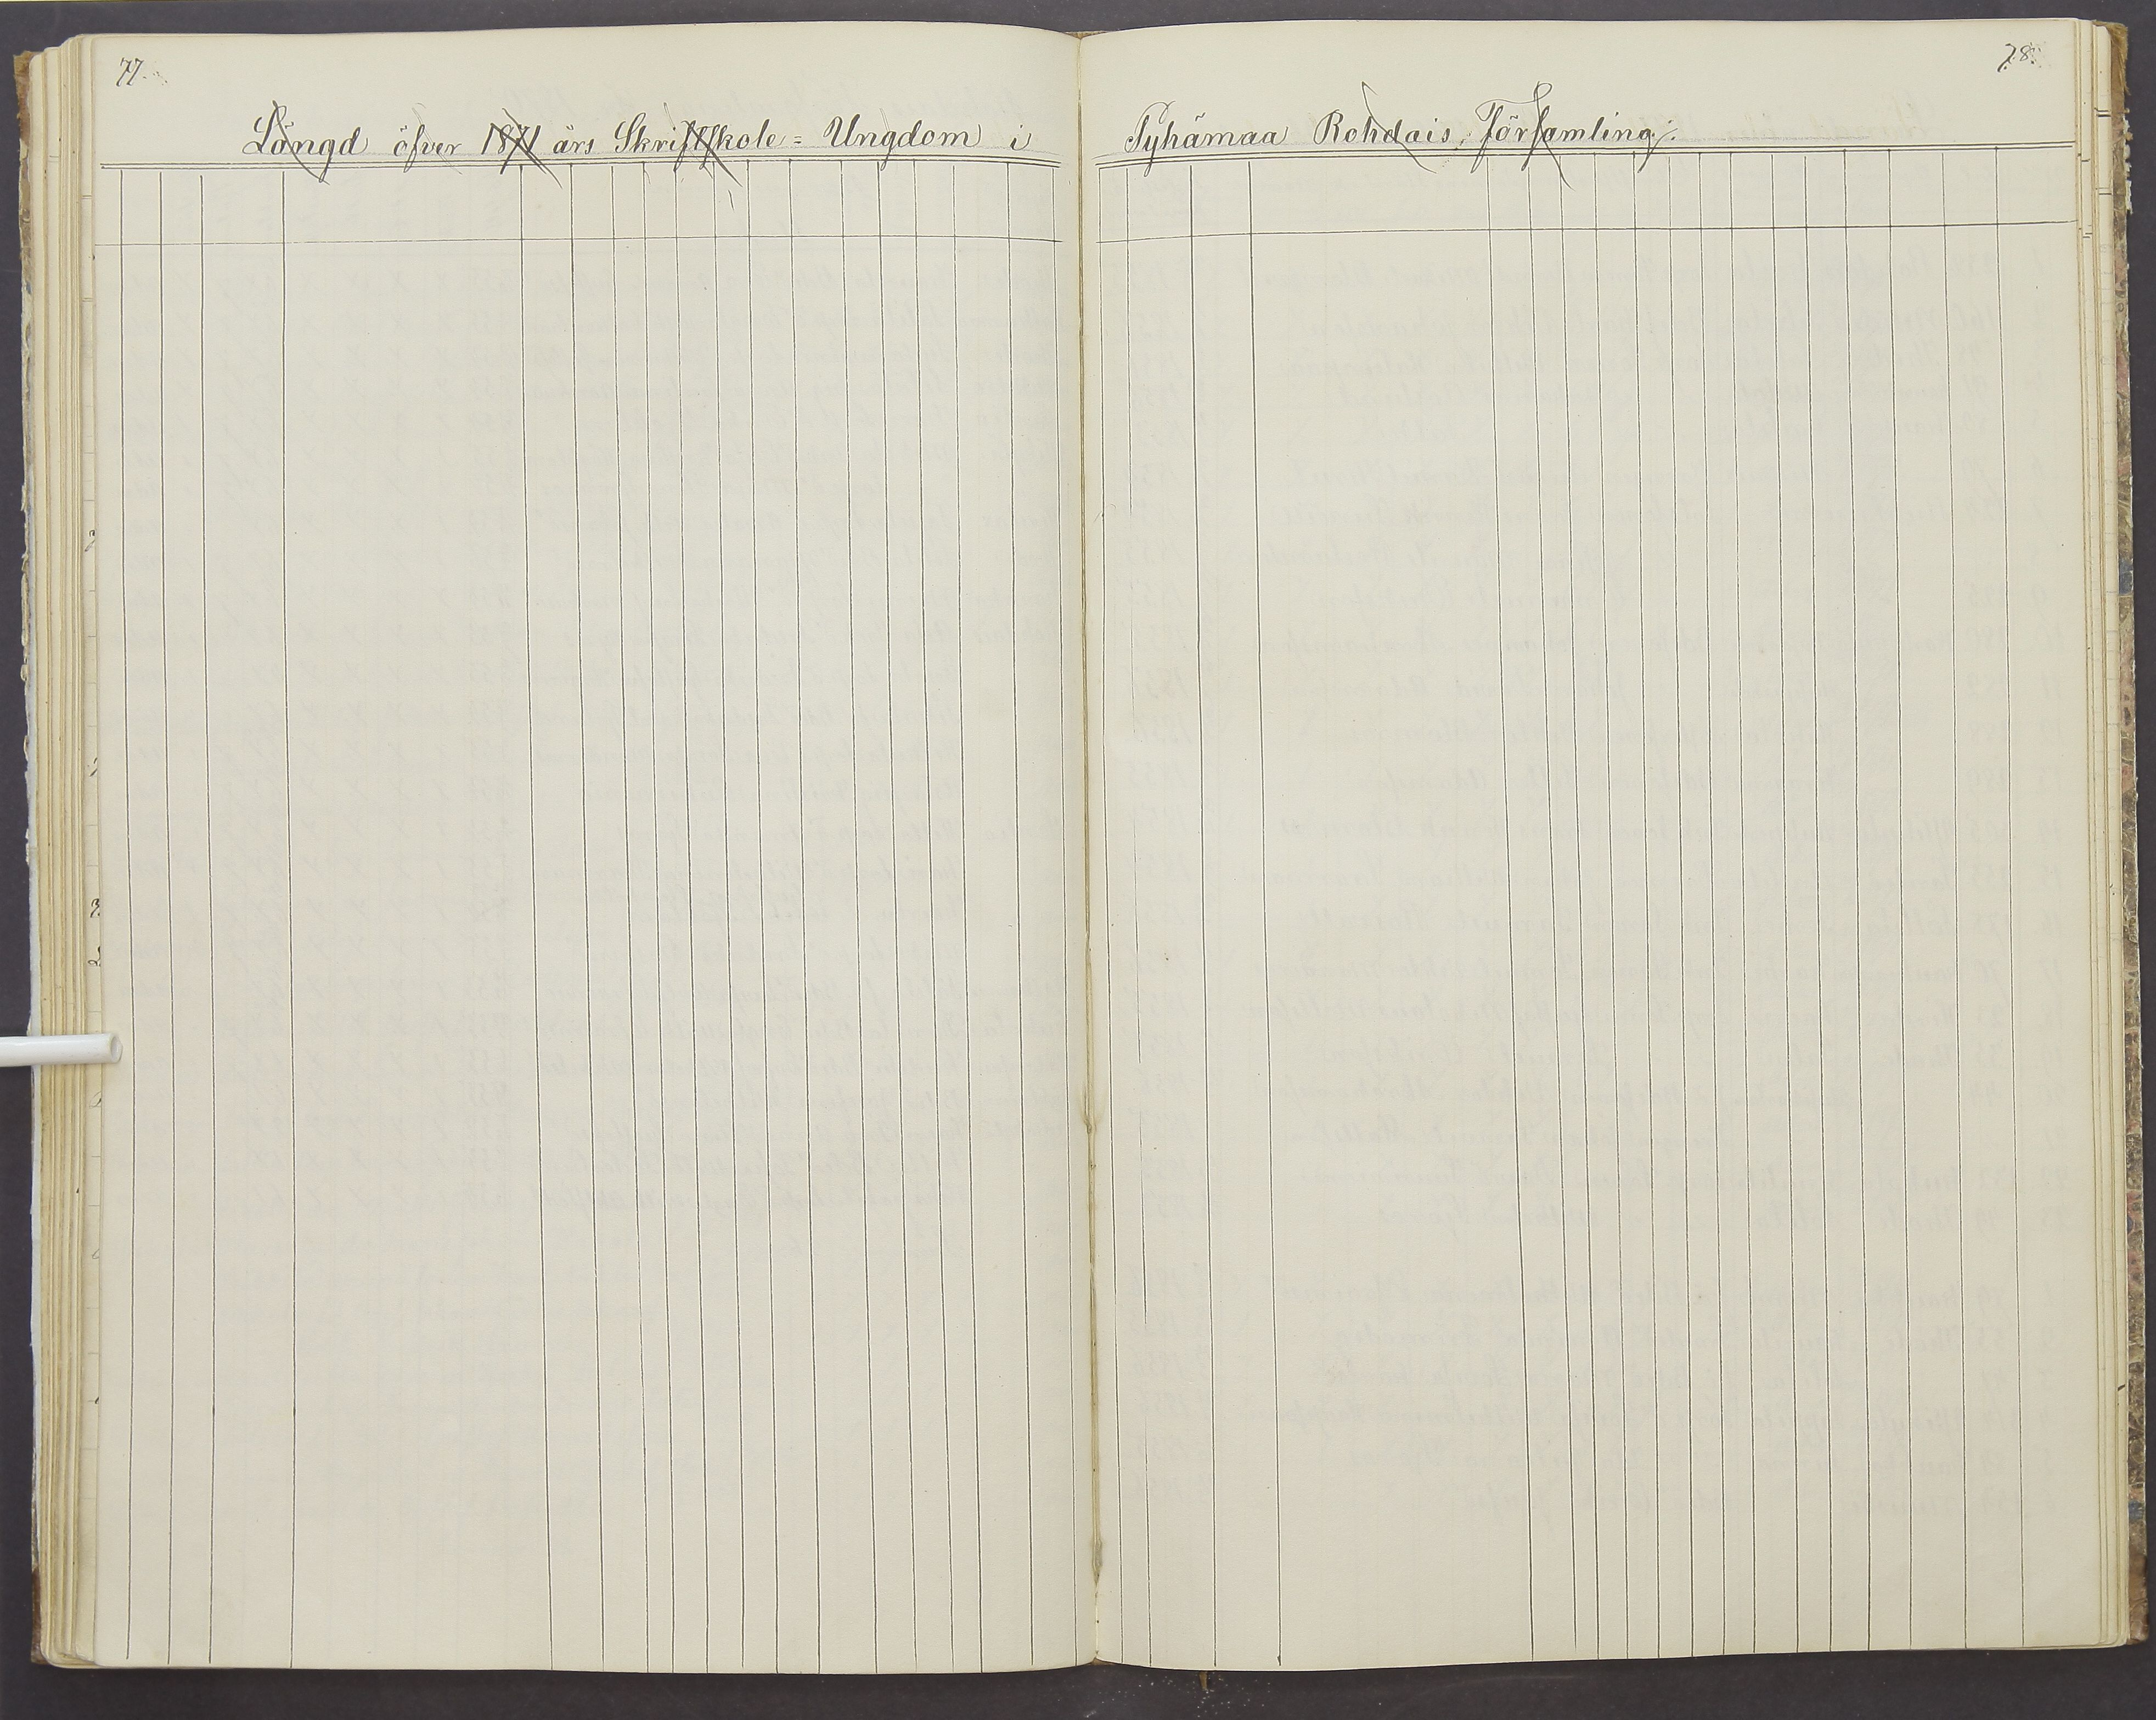 77.
78.
Längd öfver 1871 års Skriftskole = Ungdom i Pyhämaa Rohdais Församling.